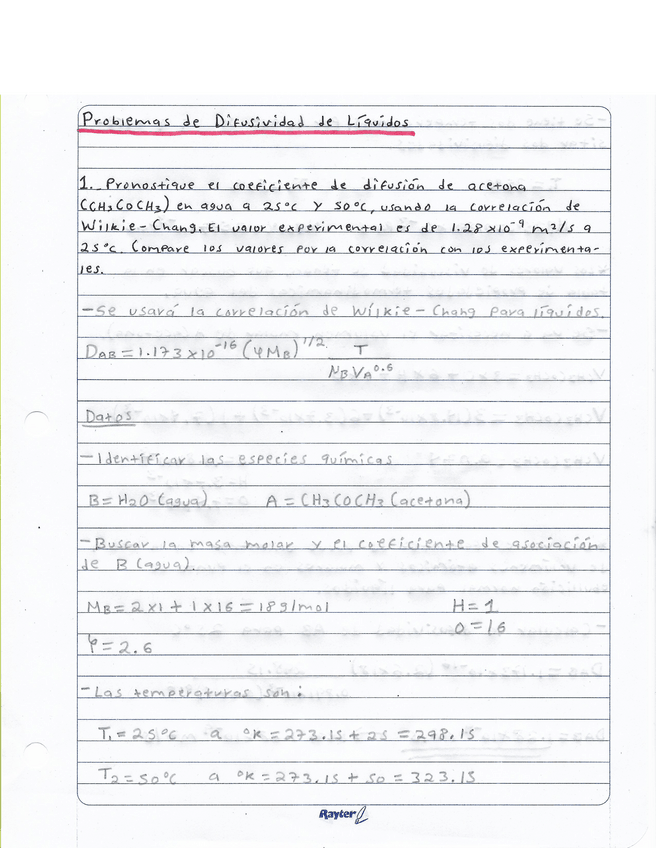 Problemas de Difusividad de Líquidos
1. Pronostique el coeficiente de difusión de acetona
(CH3COCH3) en agua a 25°C y 50°C, usando la correlación de
Wilkie-Chang. El valor experimental es de 1.28x10⁻⁹ m²/s a
25°C. Compare los valores por la correlación con los experimenta-
les.
-Se usará la correlación de Wilkie-Chang para líquidos.
DAB = 1.173x10⁻¹⁶ (φMB)^1/2 T
μB VA^0.6
Datos
-Identificar las especies químicas
B = H2O (agua) A = CH3COCH3 (acetona)
-Buscar la masa molar y el coeficiente de asociación
de B (agua).
MB = 2x1 + 1x16 = 18 g/mol H = 1
O = 16
φ = 2.6
-Las temperaturas son:
T1 = 25°C a °K = 273.15 + 25 = 298.15
T2 = 50°C a °K = 273.15 + 50 = 323.15
Rayter